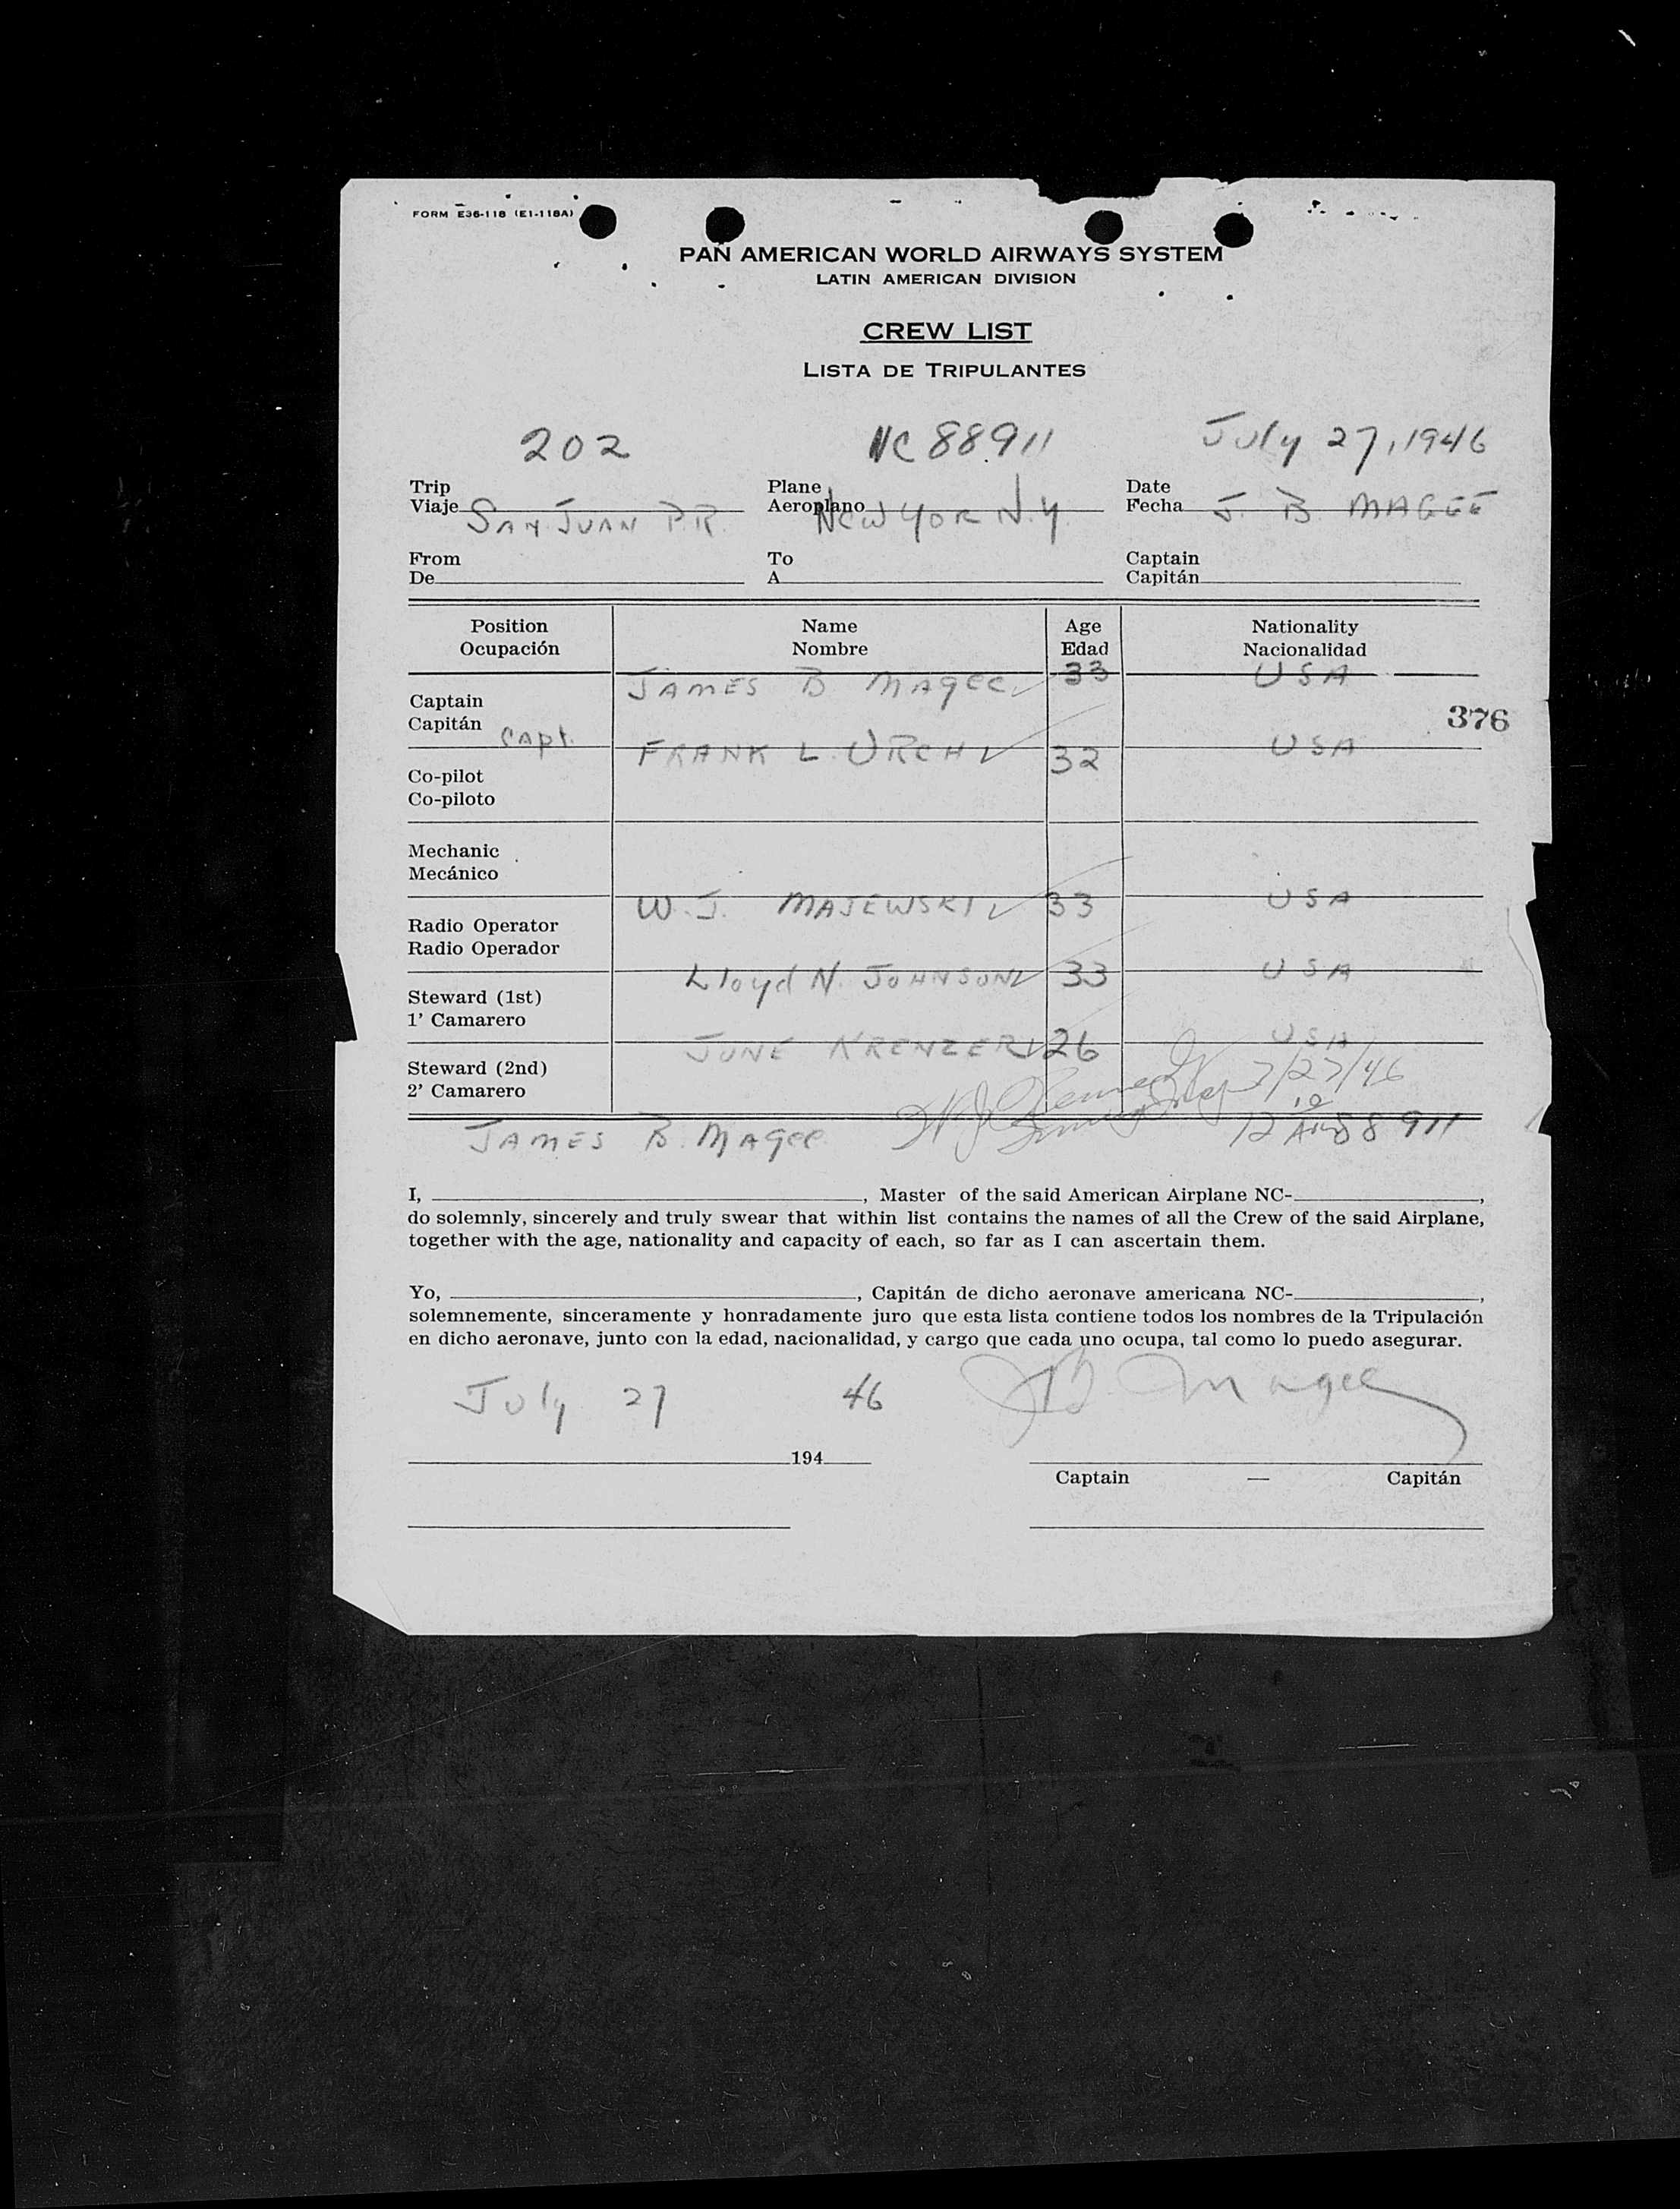 FORM E36-118 (E1-118A)
PAN AMERICAN WORLD AIRWAYS SYSTEM
LATIN AMERICAN DIVISION
CREW LIST
LISTA DE TRIPULANTES
202 NC 88911 July 27, 1946
Trip Plane Date
Viaje Aeroplano Fecha
SAN JUAN P.R. NEW YOR N.Y. J. B MAGEE
From To Captain
De A Capitán
Position Name Age Nationality
Ocupación Nombre Edad Nacionalidad
JAMES B MAgee 33 USA
Captain
Capitán 376
Capt. FRANK L. URCH 32 USA
Co-pilot
Co-piloto
Mechanic
Mecánico
W. J. MAJEWSKI 33 USA
Radio Operator
Radio Operador
Lloyd N. JOHNSON 33 USA
Steward (1st)
1' Camarero
JUNE KRENZER 26 USA
Steward (2nd) 7/27/46
2' Camarero
JAMES B. MAgee 88911
I, , Master of the said American Airplane NC- ,
do solemnly, sincerely and truly swear that within list contains the names of all the Crew of the said Airplane,
together with the age, nationality and capacity of each, so far as I can ascertain them.
Yo, , Capitán de dicho aeronave americana NC- ,
solemnemente, sinceramente y honradamente juro que esta lista contiene todos los nombres de la Tripulación
en dicho aeronave, junto con la edad, nacionalidad, y cargo que cada uno ocupa, tal como lo puedo asegurar.
July 27 46 JB Magee
194
Captain — Capitán